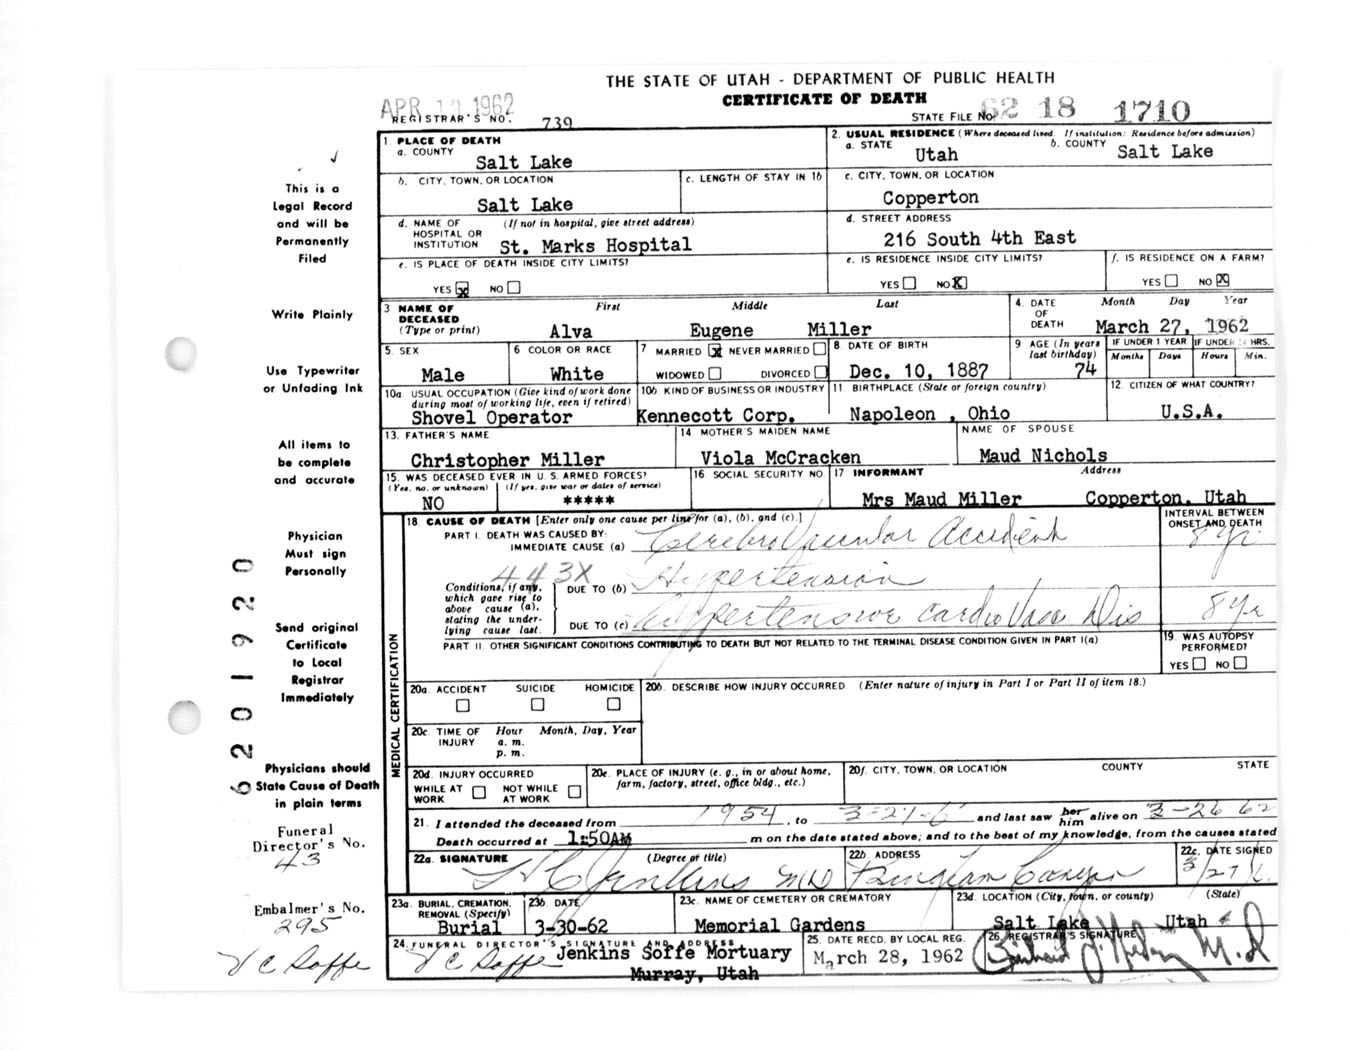 THE STATE OF UTAH - DEPARTMENT OF PUBLIC HEALTH
CERTIFICATE OF DEATH
APR 1962
REGISTRAR'S NO. 739
STATE FILE No. 62 18 1710
1. PLACE OF DEATH
a. COUNTY
Salt Lake
2. USUAL RESIDENCE (Where deceased lived. If institution: Residence before admission)
a. STATE
Utah
b. COUNTY
Salt Lake
b. CITY, TOWN, OR LOCATION
Salt Lake
c. LENGTH OF STAY IN 1b
c. CITY, TOWN, OR LOCATION
Copperton
d. NAME OF HOSPITAL OR INSTITUTION
(If not in hospital, give street address)
St. Marks Hospital
d. STREET ADDRESS
216 South 4th East
e. IS PLACE OF DEATH INSIDE CITY LIMITS?
YES x NO
e. IS RESIDENCE INSIDE CITY LIMITS?
YES NO X
f. IS RESIDENCE ON A FARM?
YES NO X
3 NAME OF DECEASED
(Type or print)
First Middle Last
Alva Eugene Miller
4. DATE OF DEATH
Month Day Year
March 27, 1962
5. SEX
Male
6 COLOR OR RACE
White
7 MARRIED x NEVER MARRIED
WIDOWED DIVORCED
8 DATE OF BIRTH
Dec. 10, 1887
9 AGE (In years last birthday)
74
IF UNDER 1 YEAR
Months Days
IF UNDER HRS.
Hours Min.
10a. USUAL OCCUPATION (Give kind of work done during most of working life, even if retired)
Shovel Operator
10b. KIND OF BUSINESS OR INDUSTRY
Kennecott Corp.
11 BIRTHPLACE (State or foreign country)
Napoleon , Ohio
12. CITIZEN OF WHAT COUNTRY?
U.S.A.
13. FATHER'S NAME
Christopher Miller
14 MOTHER'S MAIDEN NAME
Viola McCracken
NAME OF SPOUSE
Maud Nichols
15. WAS DECEASED EVER IN U. S. ARMED FORCES?
(Yes, no, or unknown) (If yes, give war or dates of service)
NO *****
16. SOCIAL SECURITY NO.
17 INFORMANT Address
Mrs Maud Miller Copperton, Utah
18. CAUSE OF DEATH [Enter only one cause per line for (a), (b), and (c).]
INTERVAL BETWEEN ONSET AND DEATH
PART I. DEATH WAS CAUSED BY:
IMMEDIATE CAUSE (a) Cerebro Vascular Accident 8 yr
443X
Conditions, if any, which gave rise to above cause (a), stating the underlying cause last.
DUE TO (b) Hypertension
DUE TO (c) Hypertensive Cardio Vasc Dis 8 yr
PART II. OTHER SIGNIFICANT CONDITIONS CONTRIBUTING TO DEATH BUT NOT RELATED TO THE TERMINAL DISEASE CONDITION GIVEN IN PART I(a)
19. WAS AUTOPSY PERFORMED?
YES NO
MEDICAL CERTIFICATION
20a. ACCIDENT SUICIDE HOMICIDE
20b. DESCRIBE HOW INJURY OCCURRED. (Enter nature of injury in Part I or Part II of item 18.)
20c. TIME OF INJURY
Hour Month, Day, Year
a. m.
p. m.
20d. INJURY OCCURRED
WHILE AT WORK NOT WHILE AT WORK
20e. PLACE OF INJURY (e. g., in or about home, farm, factory, street, office bldg., etc.)
20f. CITY, TOWN, OR LOCATION COUNTY STATE
21. I attended the deceased from 1954, to and last saw her him alive on 3-26 62
Death occurred at 1:50AM m on the date stated above; and to the best of my knowledge, from the causes stated
22a. SIGNATURE (Degree or title)
Jenkins MD
22b. ADDRESS
Bingham Canyon
22c. DATE SIGNED
3/27/
23a. BURIAL, CREMATION, REMOVAL (Specify)
Burial
23b. DATE
3-30-62
23c. NAME OF CEMETERY OR CREMATORY
Memorial Gardens
23d. LOCATION (City, town, or county) (State)
Salt Lake Utah
24. FUNERAL DIRECTOR'S SIGNATURE AND ADDRESS
Jenkins Soffe Mortuary
Murray, Utah
25. DATE RECD. BY LOCAL REG.
March 28, 1962
26. REGISTRAR'S SIGNATURE
M.D
This is a
Legal Record
and will be
Permanently
Filed
Write Plainly
Use Typewriter
or Unfading Ink
All items to
be complete
and accurate
Physician
Must sign
Personally
Send original
Certificate
to Local
Registrar
Immediately
Physicians should
State Cause of Death
in plain terms
Funeral
Director's No.
43
Embalmer's No.
295
62019 20